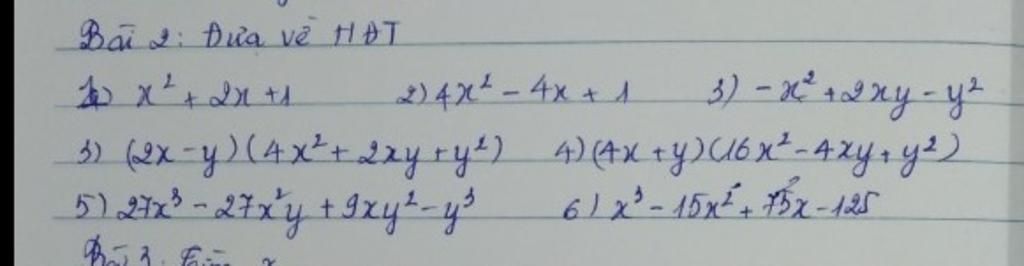 Bài 2: Đưa về HĐT
1) x² + 2x + 1 2) 4x² - 4x + 1 3) -x² + 2xy - y²
3) (2x - y)(4x² + 2xy + y²) 4) (4x + y)(16x² - 4xy + y²)
5) 27x³ - 27x²y + 9xy² - y³ 6) x³ - 15x² + 75x - 125
Bài 3: x